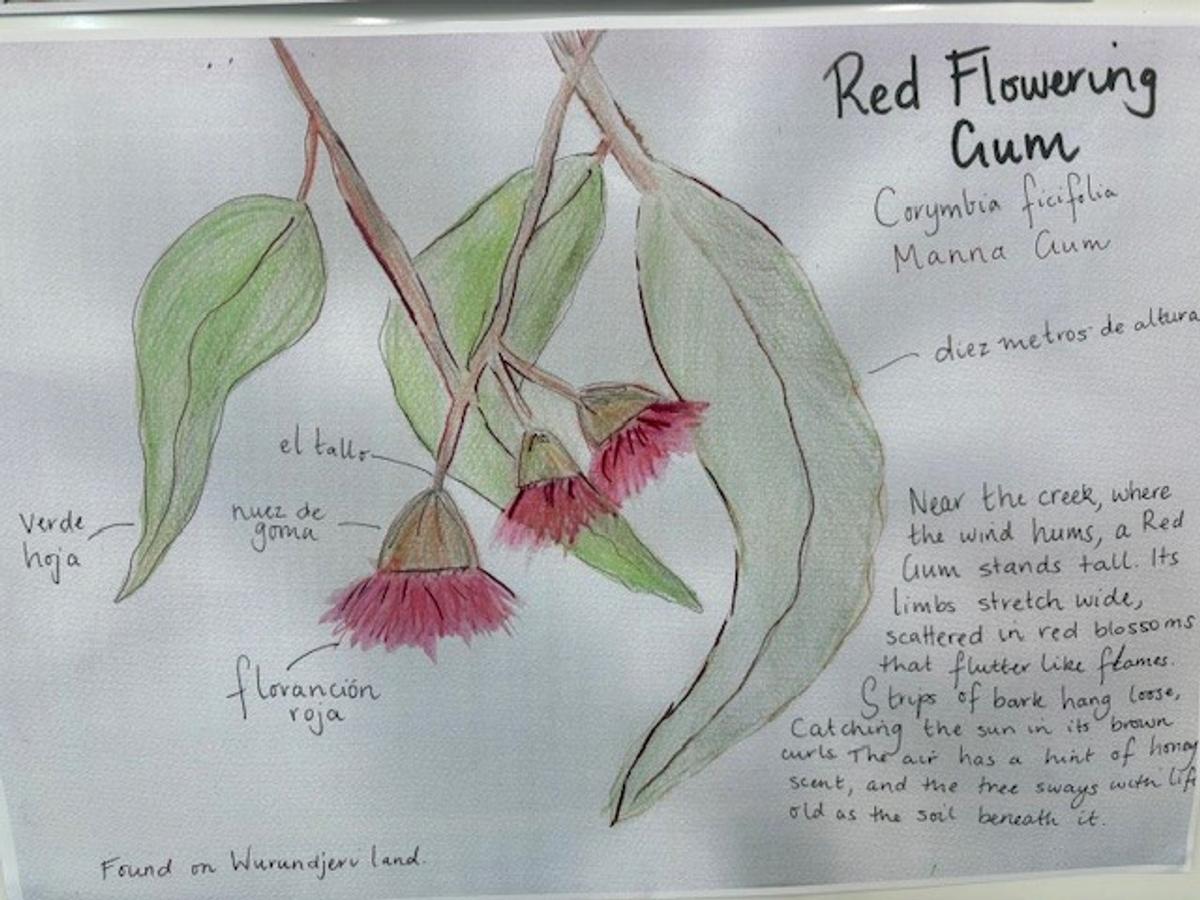 Red Flowering
Gum
Corymbia ficifolia
Manna Gum
diez metros de altura
el tallo
nuez de
goma
verde
hoja
floranción
roja
Near the creek, where
the wind hums, a Red
Gum stands tall. Its
limbs stretch wide,
scattered in red blossoms
that flutter like flames.
Strips of bark hang loose,
Catching the sun in its brown
curls The air has a hint of honey
scent, and the tree sways with life
old as the soil beneath it.
Found on Wurundjeri land.